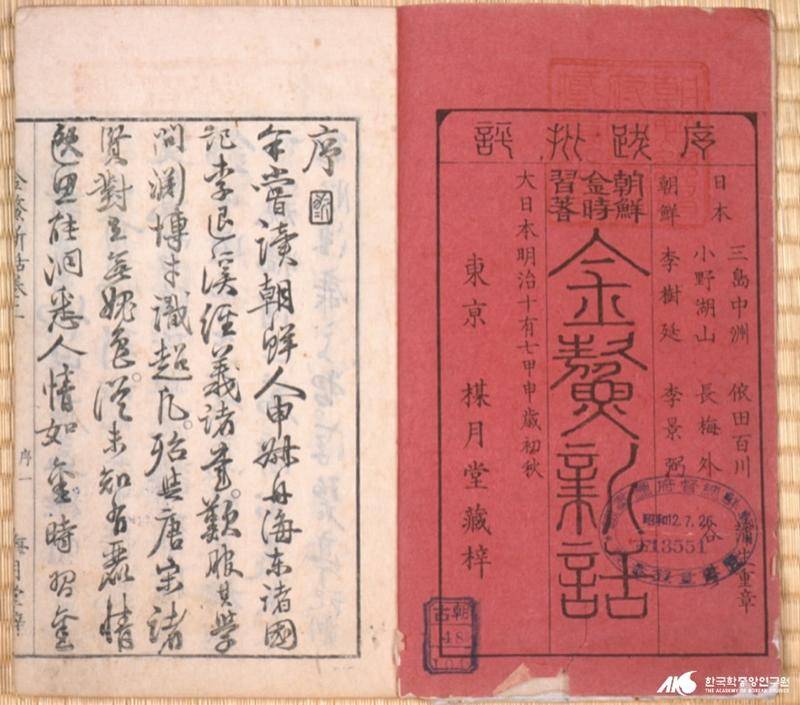 序跋批評
日本 三島中洲 依田百川 蒲生重章
小野湖山 長梅外 谷
朝鮮 李樹廷 李景弼
朝鮮金時習著
金鰲新話
大日本明治十有七甲申歳初秋
東京 楳月堂藏梓
昭和12.7.26
13551
朝古
48
序
余嘗讀朝鮮人申叔舟海東諸國
記李退溪經義諸書。歎服其學
問淵博才識超凡。殆與唐宋諸
賢對立無媿色。從未知有麗情
艶思能洞悉人情如金時習金
金鰲新話卷上 序一
AKS 한국학중앙연구원
THE ACADEMY OF KOREAN STUDIES